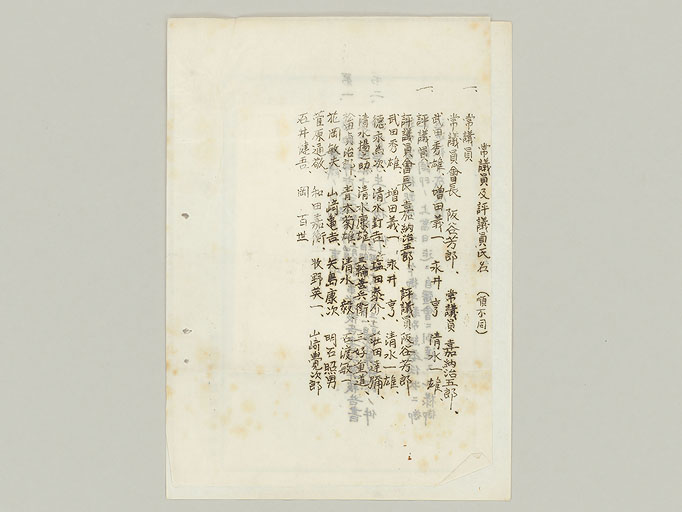 常議員及評議員氏名 (順不同)
一、常議員
常議員會長 阪谷芳郎、 常議員 嘉納治五郎、
武田秀雄、増田義一 永井 亨 清水一雄、
一、評議員
評議員會長 嘉納治五郎 評議員阪谷芳郎
武田秀雄、増田義一、永井 亨、清水一雄、
德永爲次、清水釘吉、塩田泰介、莊田達彌、
清水揚之助、清水康雄、三輪善兵衛、三好重道、
貞治郎、青木菊雄、清水
花岡敏夫 山崎亀吉、矢島康次 明石照男
菅原通敬、和田嘉衡 牧野英一、山崎覺次郎
石井健吾、岡 百世